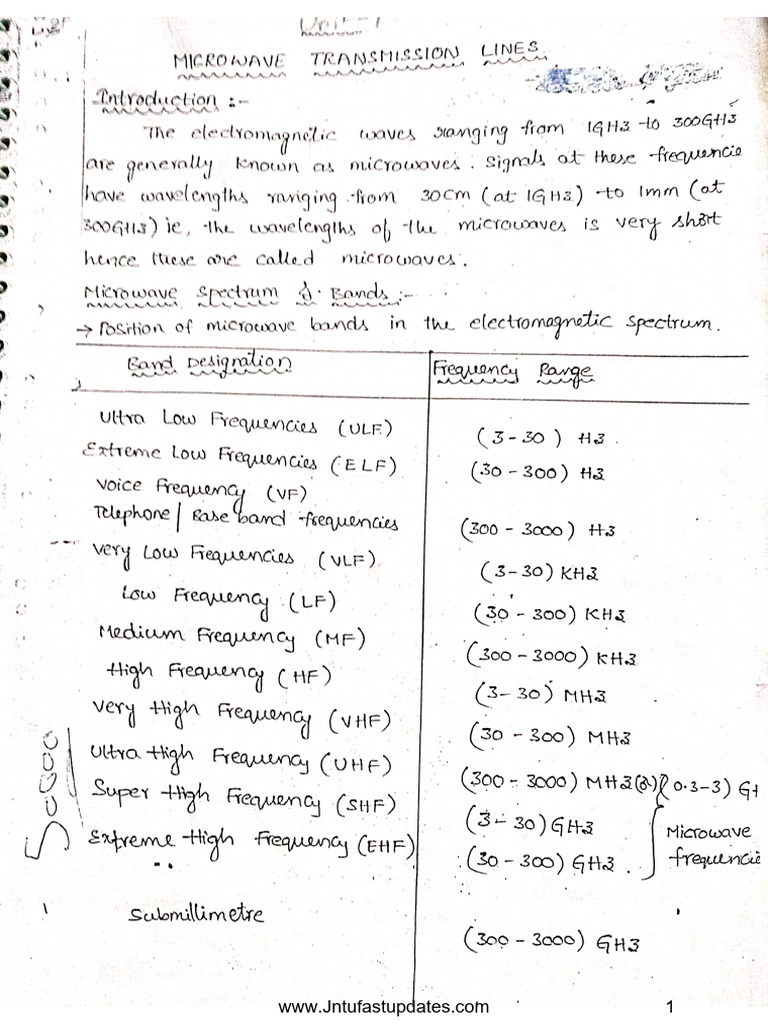 Unit-1
MICROWAVE TRANSMISSION LINES
Introduction :-
The electromagnetic waves ranging from 1GHz to 300GHz
are generally known as microwaves. Signals at these frequencie
have wavelengths ranging from 30cm (at 1GHz) to 1mm (at
300GHz) ie, the wavelengths of the microwaves is very short
hence these are called microwaves.
Microwave Spectrum & Bands :-
→ Position of microwave bands in the electromagnetic spectrum.
Band Designation Frequency Range
Ultra Low Frequencies (ULF) (3-30) Hz.
Extreme Low Frequencies (ELF) (30-300) Hz
Voice Frequency (VF)
Telephone/ Base band frequencies (300-3000) Hz
Very Low Frequencies (VLF) (3-30) KHz
Low Frequency (LF) (30-300) KHz
Medium Frequency (MF) (300-3000) KHz
High Frequency (HF) (3-30) MHz
Very High Frequency (VHF) (30-300) MHz
Ultra High Frequency (UHF) (300-3000) MHz (or) (0.3-3) G
Super High Frequency (SHF) (3-30) GHz
Extreme High Frequency (EHF) (30-300) GHz.
Microwave
frequencie
Submillimetre (300-3000) GHz
www.Jntufastupdates.com 1